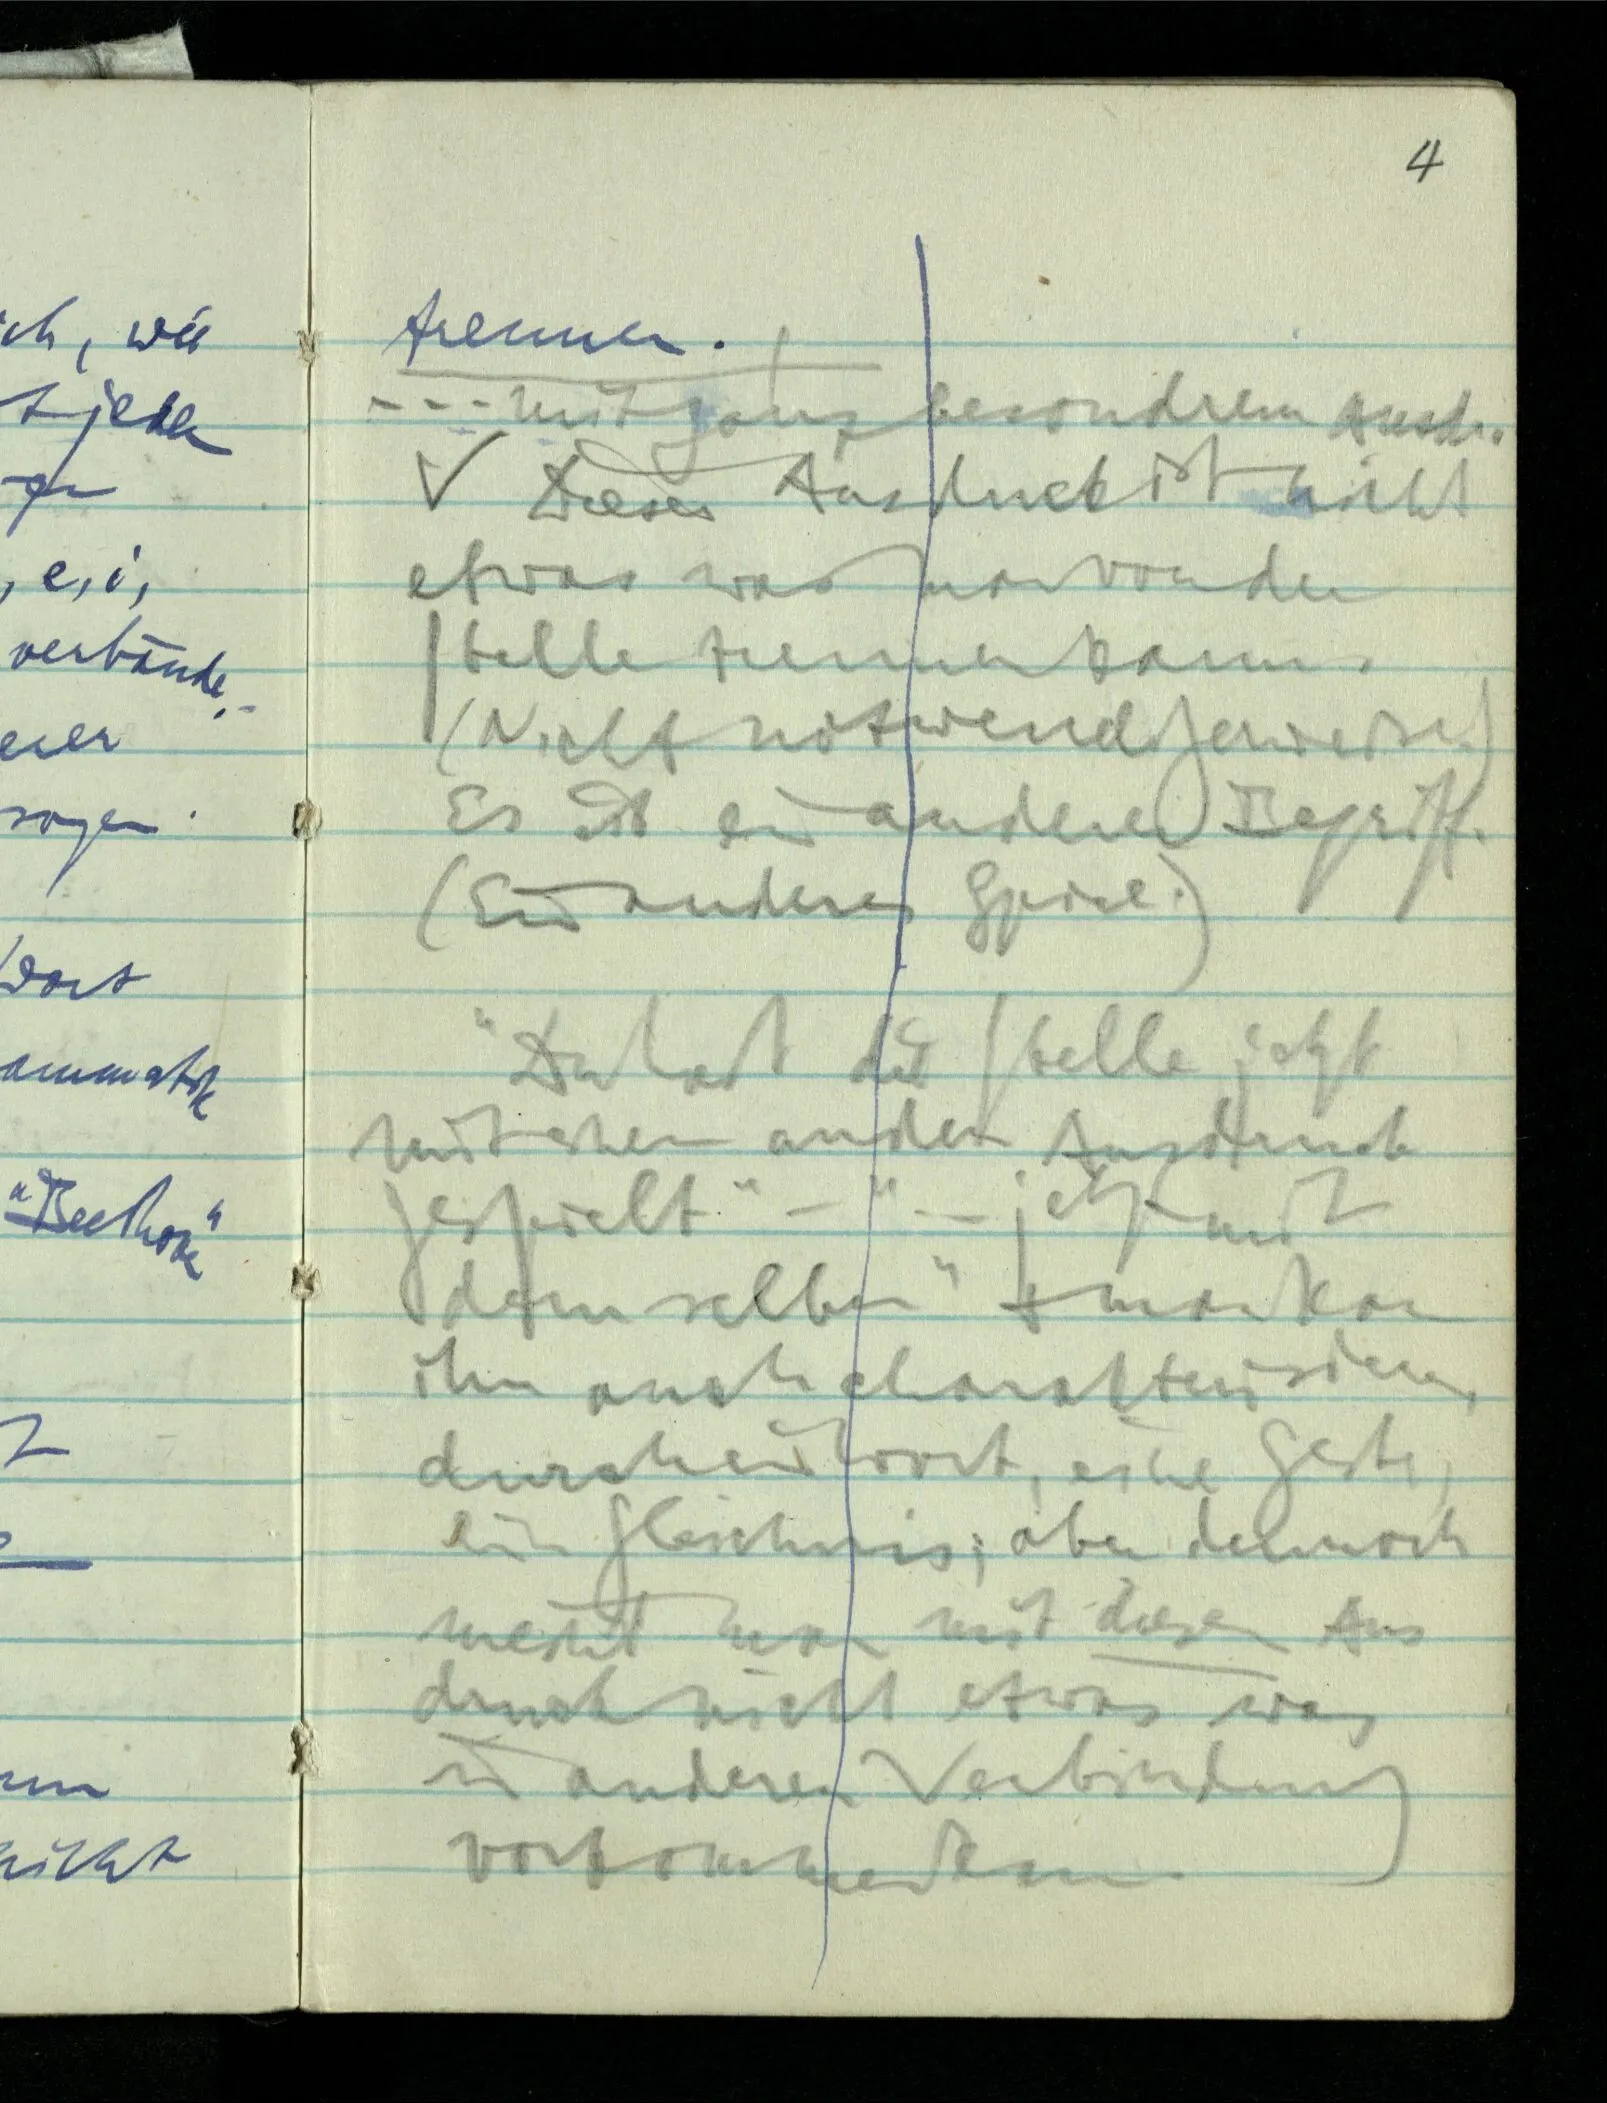 ich, wie
t jeder
, e, i,
verbände.
sagen.
Wort
ammatik
"Beethov"
nicht
4
trennen.
---mit ganz besondrem Ausdr.
✓ Dieser Ausdruck ist nicht
etwas was man von der
Stelle trennen kann.
(Nicht notwendigerweise)
Es ist ein anderer Begriff.
(Ein anderes Spiel.)
"Du hast die Stelle jetzt
mit einem andern Ausdruck
gespielt" – " – jetzt mit
demselben" & man kann
ihn auch charakterisieren,
durch ein Wort, eine Geste,
ein Gleichnis; aber dennoch
meint man mit diesem Aus
druck nicht etwas was
in anderen Verbindung
vorkommen kann.